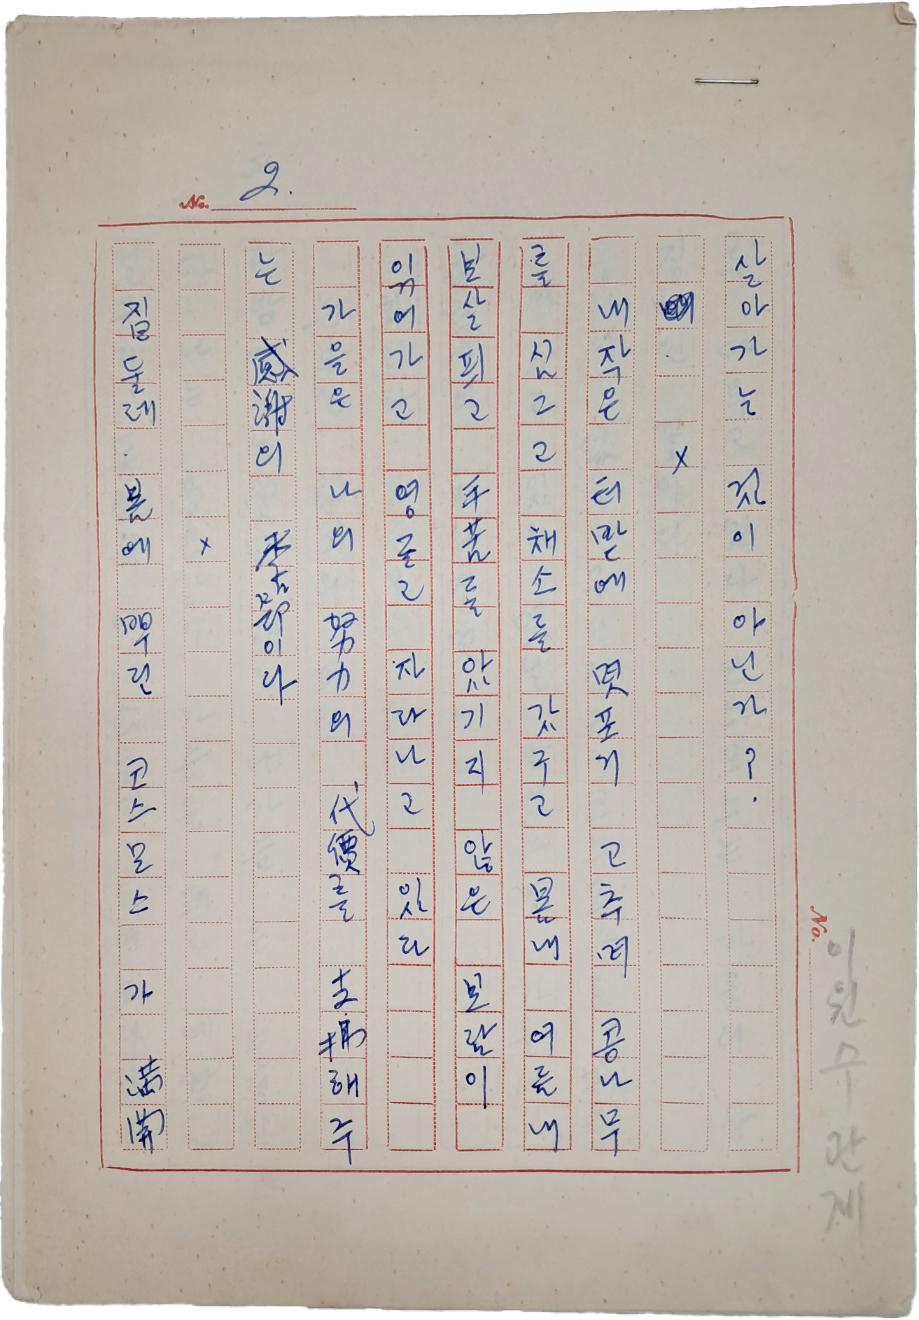 No. 2.
살아가는 것이 아닌가?.
×
내작은 터만에 몇포기 고추며 콩나무
를 심그고 채소를 갔구고 봄내 여름내
보살피고 았기지 않은 보람이
익어가고 영글고 자라나고 있다
가을은 나의 努力의 代價를 支拂해주
는 感謝의 季節이다
×
집둘레. 봄에 뿌린 코스모스 가 満開
No.
이원수 관계